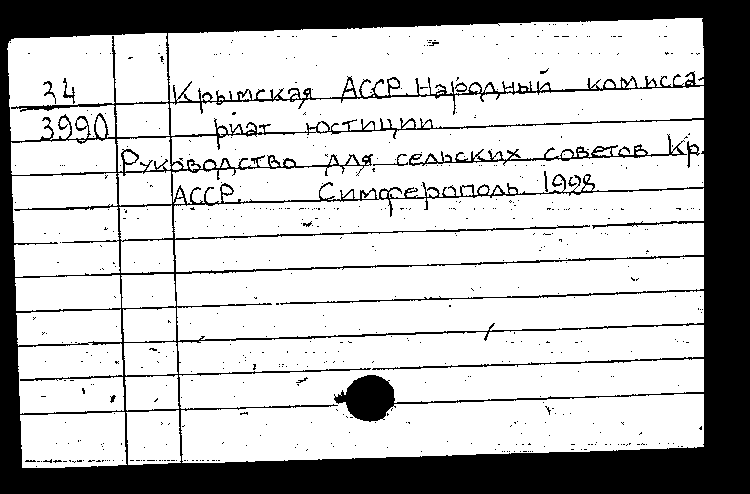 34 Крымская АССР. Народный комисса-
3990 риат юстиции
Руководство для сельских советов Кр.
АССР. Симферополь. 1928